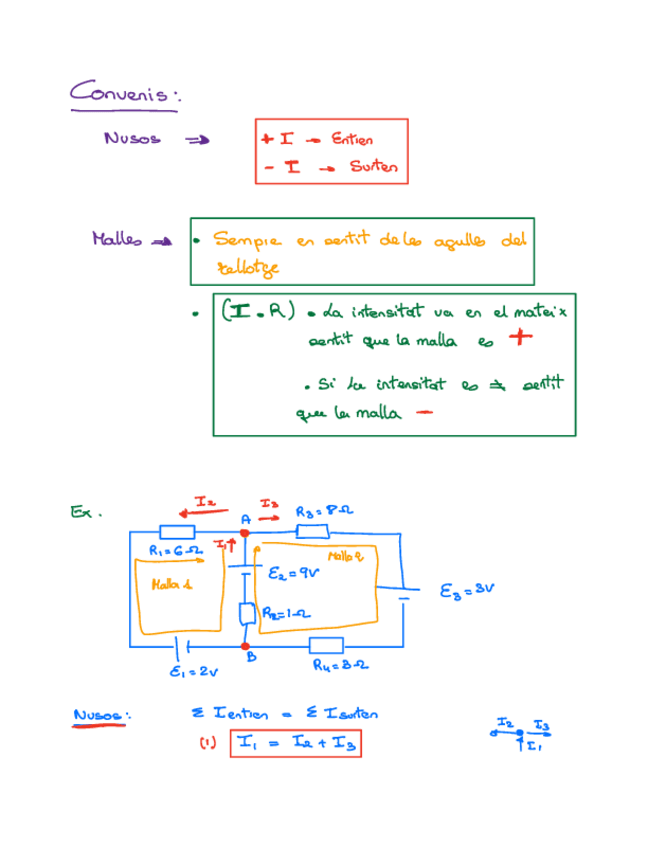 Convenis:
Nusos ⇒ + I → Entren
- I → Surten
Malles → • Sempre en sentit de les agulles del
rellotge
• (I . R) • La intensitat va en el mateix
sentit que la malla es +
• Si la intensitat es ≠ sentit
que la malla -
Ex.
I2
A
I3
R3 = 8Ω
R1 = 6Ω
I1
Malla 1
Malla 2
ε2 = 9V
ε3 = 3V
R2 = 1Ω
B
ε1 = 2V
R4 = 3Ω
Nusos: Σ I entren = Σ I surten
(1) I1 = I2 + I3
I2
I3
I1